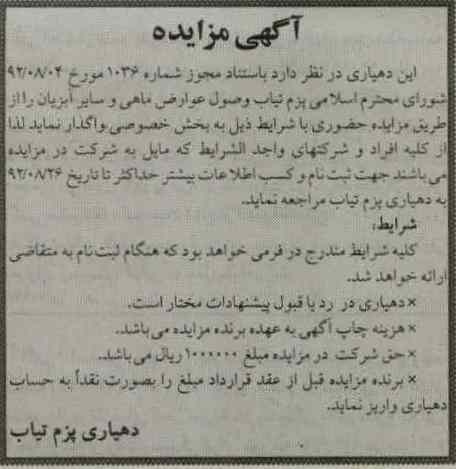 آگهی مزایده
این دهیاری در نظر دارد باستناد مجوز شماره ۱۰۳۶ مورخ ۹۲/۰۸/۰۴
شورای محترم اسلامی پزم تیاب وصول عوارض ماهی و سایر آبزیان را از
طریق مزایده حضوری با شرایط ذیل به بخش خصوصی واگذار نماید لذا
از کلیه افراد و شرکتهای واجد الشرایط که مایل به شرکت در مزایده
می باشند جهت ثبت نام و کسب اطلاعات بیشتر حداکثر تا تاریخ ۹۲/۰۸/۲۶
به دهیاری پزم تیاب مراجعه نماید.
شرایط:
کلیه شرایط مندرج در فرمی خواهد بود که هنگام ثبت نام به متقاضی
ارائه خواهد شد.
×دهیاری در رد یا قبول پیشنهادات مختار است.
×هزینه چاپ آگهی به عهده برنده مزایده می باشد.
×حق شرکت در مزایده مبلغ ۱۰۰۰۰۰۰ ریال می باشد.
× برنده مزایده قبل از عقد قرارداد مبلغ را بصورت نقداً به حساب
دهیاری واریز نماید.
دهیاری پزم تیاب